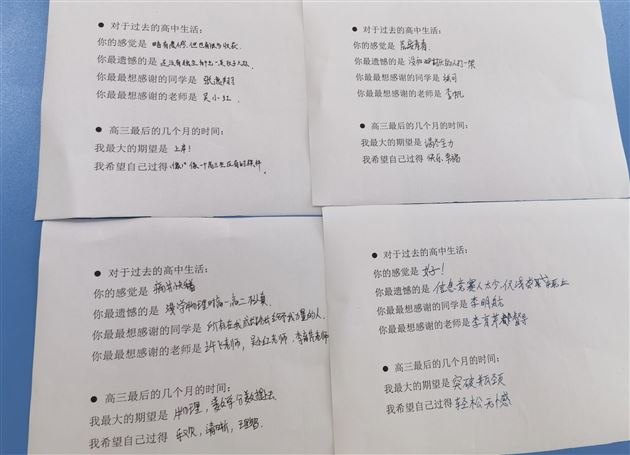 ● 对于过去的高中生活：
你的感觉是 略有遗憾，但也有很多收获。
你最遗憾的是 还没有独立
你最最想感谢的同学是 张逸翔
你最最想感谢的老师是 吴小红
● 高三最后的几个月的时间：
我最大的期望是 上岸！
我希望自己过得
● 对于过去的高中生活：
你的感觉是
你最遗憾的是 没和 的人打一架
你最最想感谢的同学是
你最最想感谢的老师是 李帆
● 高三最后的几个月的时间：
我最大的期望是 竭尽全力
我希望自己过得 快乐 幸福
● 对于过去的高中生活：
你的感觉是 痛并快乐
你最遗憾的是 没学好物理 高一高二不认真
你最最想感谢的同学是 所有在我 给予我力量的人
你最最想感谢的老师是 许飞老师，吴小红老师，李育苹老师
● 高三最后的几个月的时间：
我最大的期望是 物理，数学 分数提上去
我希望自己过得 乐观，清晰，理智
● 对于过去的高中生活：
你的感觉是 好！
你最遗憾的是 信息竞赛人太少，仅
你最最想感谢的同学是 李明航
你最最想感谢的老师是 李育苹
● 高三最后的几个月的时间：
我最大的期望是 突破瓶颈
我希望自己过得 轻松无憾